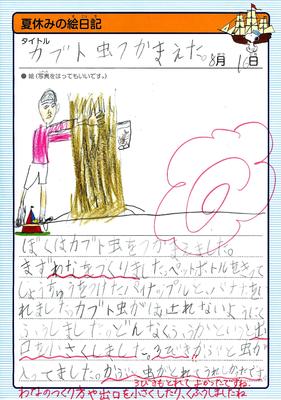 夏休みの絵日記
タイトル
カブト虫つかまえた。 8月 16日
● 絵(写真をはってもいいです。)
ぼくはカブト虫をつかまえました。
まずわなをつくりました。ペットボトルをきって
しょうちゅうをつけたパイナップルと、バナナをい
れました。カブト虫がにげれないようにく
ふうしました。どんなくふうかというと出
口を小さくしました。3びきかぶと虫が
入ってました。かぶと虫がとれてうれしかったです。
3びきもとれてよかったですね。
わなのつくり方や出口を小さくしたり、くふうしましたね